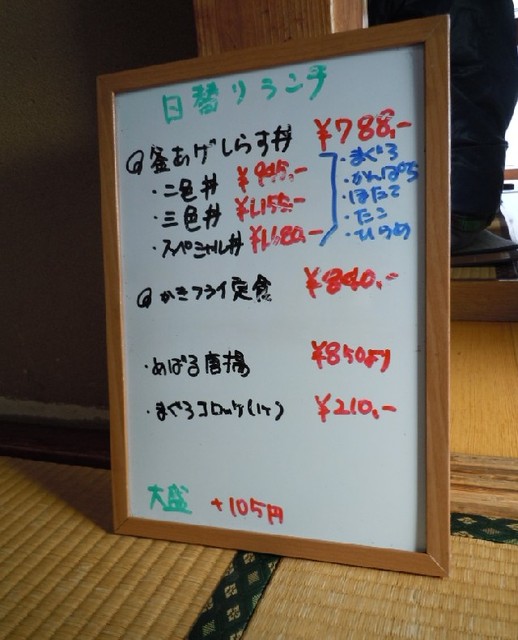 日替りランチ
@釜あげしらす丼 ¥788,-
・二色丼 ¥945,-
・三色丼 ¥1,155,-
・スペシャル丼 ¥1,680,-
・まぐろ
・かんぱち
・ほたて
・たこ
・ひらめ
@かきフライ定食 ¥840,-
・めばる唐揚 ¥850より
・まぐろコロッケ(1ケ) ¥210,-
大盛 +105円